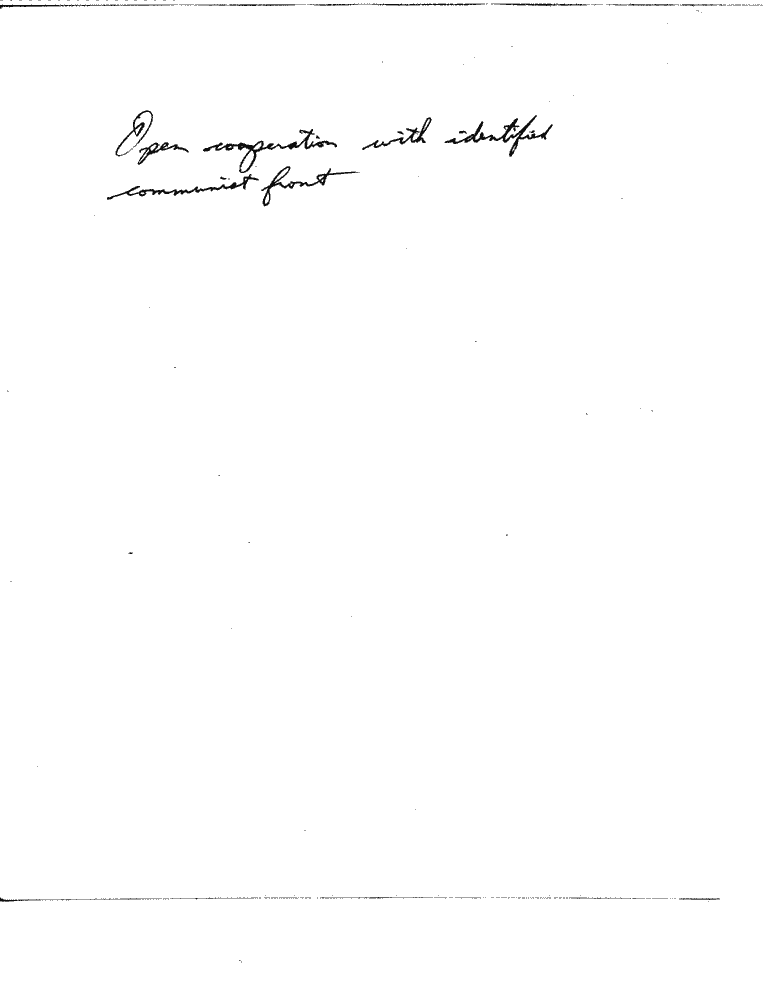 Open cooperation with identified
communist front